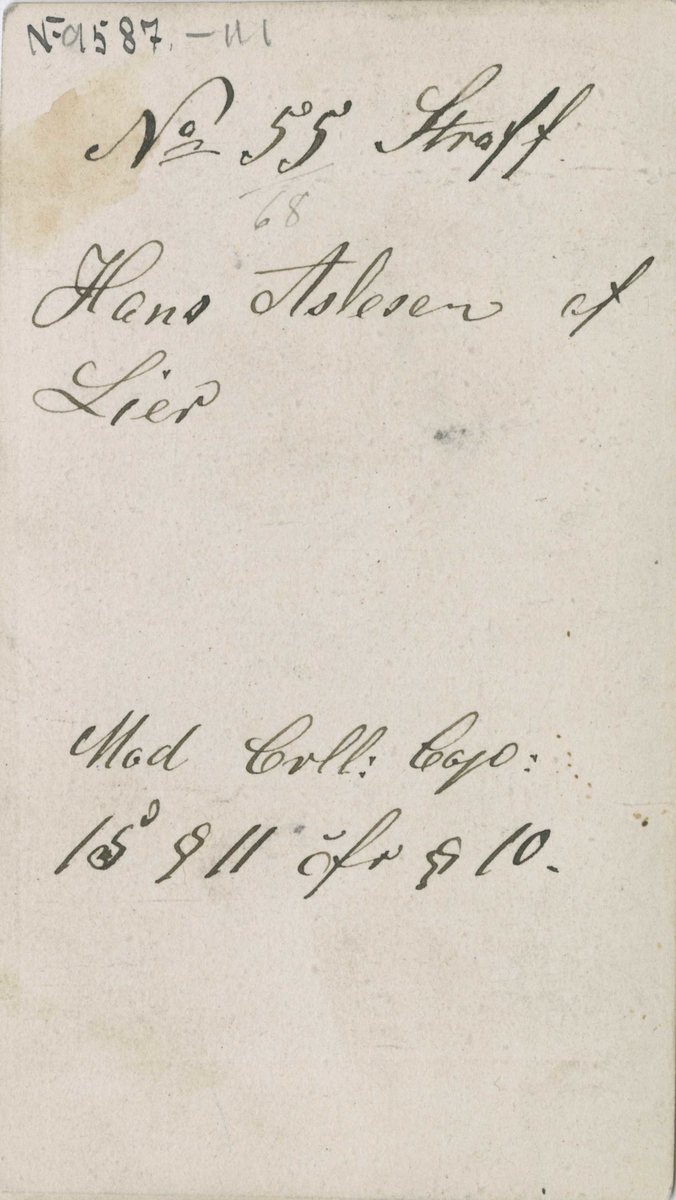 No 9587. – III
No 55 Straff
68
Hans Aslesen af
Lier
Mod Crll: Cap:
15 § 11 cfr § 10.